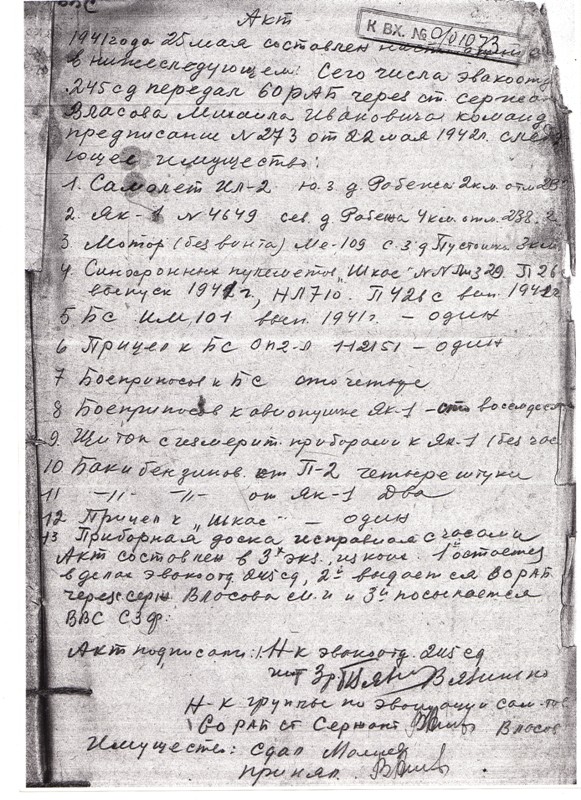 Акт
К ВХ. № 0/01073
1941 года 25 мая составлен
в нижеследующем: Сего числа эвакоотд
245 сд передал 60 РАБ через ст. сержан
Власова Михаила Ивановича команд
предписание № 273 от 22 мая 1942 г. след
ующее имущество:
1. Самолет Ил-2 ю.з. д. Рабежа 2 км.
2. Як-1 № 4649 сев. д. Рабежа 4 км. отм. 238.2
3. Мотор (без винта) Ме-109 с.з. д. Пустошка 3 км
4. Синхронных пулеметов "Шкас" NN
выпуск 1941 г, НЛ710. П426с вып. 194 г
5 БС ИМ 101 вып. 1941 г. – один
6 Прицел к БС ОП2-Л 112151 – один
7 Боеприпасов к БС сто четыре
8 Боеприпасов к авиопушке Як-1 – сто восемдесят
9. Щиток с измерит. приборами к Як-1 (без час
10 Баки бензинов. от П-2 четыре штуки
11 -"- -"- от Як-1 Два
12 Прицел к "Шкас" – один
13 Приборная доска исправная с часами
Акт составлен в 3х экз., из коих 1й остается
в делах эвакоотд. 245 сд, 2й выдается 60 РАБ
через серж Власова М.И и 3й посылается
ВВС СЗФ.
Акт подписали: Н-к эвакоотд. 245 сд
Н-к группы по эвакуации сам-тов
60 РАБ ст Сержант Власов
Имущество: сдал
принял